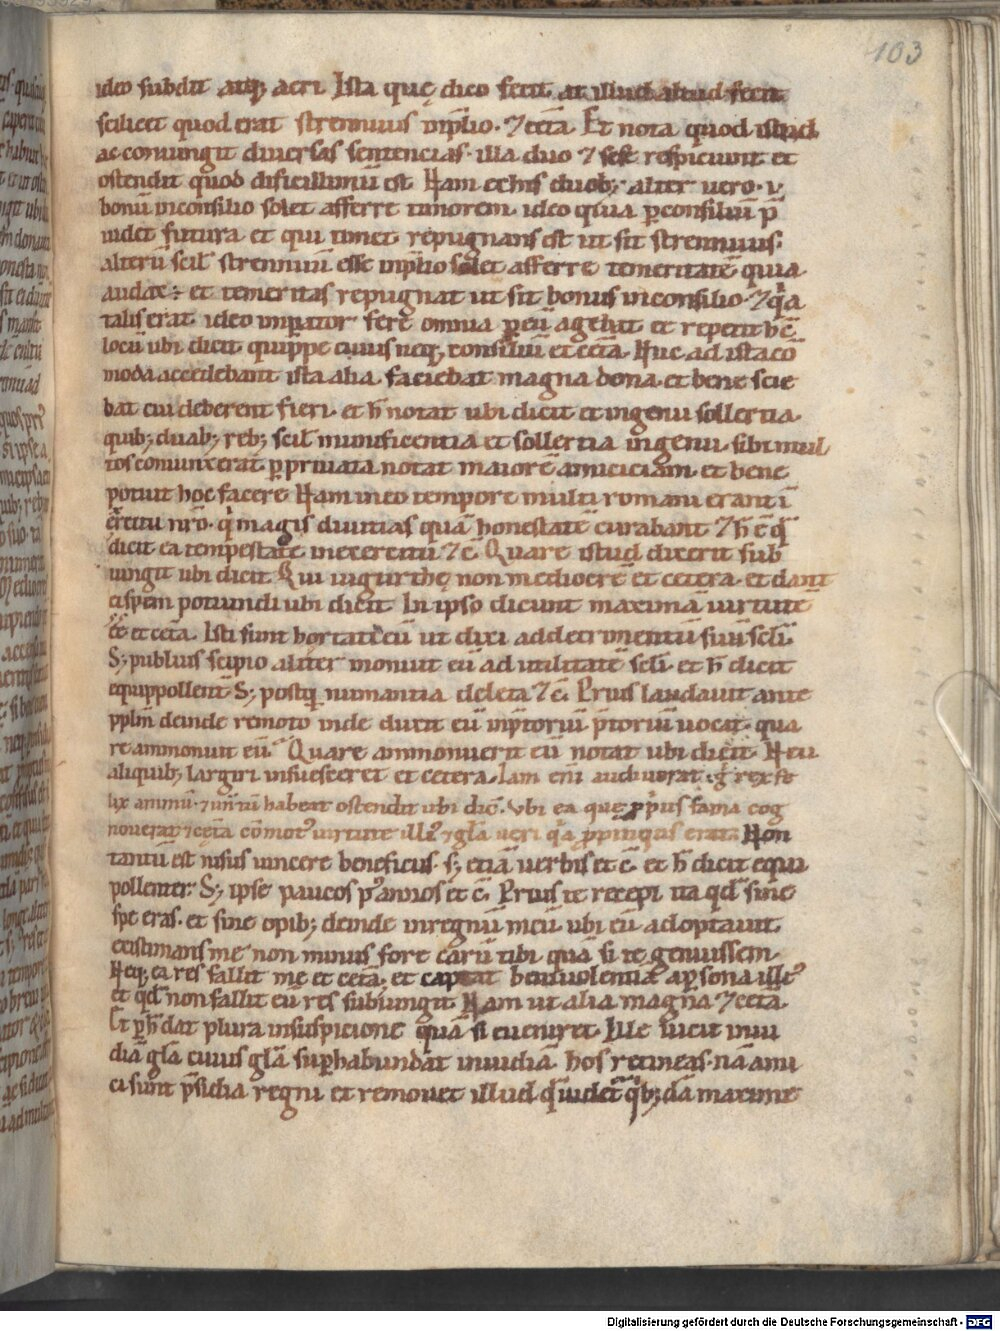 103
ideo subdit atq; acri. Ista quę dico fecit. at illud aliud fecit
scilicet quod erat strennuus inp̄lio. ⁊ cет̄a. Et nota quod istud
ac coniungit diuersas sentencias. illa duo ⁊ sese respiciunt et
ostendit quod dificillimū est. Nam ex his duob; alter uero. v
bonū inconsilio solet afferre timorem. ideo quia p̱consiliū p̄
uidet futura et qui timet repugnans est ut sit strennuus.
alterū scil̄ strennuū esse inp̄lio solet afferre temeritatē quia
audax ÷ et temeritas repugnat ut sit bonus inconsilio. ⁊ q̇a
talis erat ideo inp̱ator fere omnia p̱ eū agebat et repetit h̄c̄
locū ubi dicit quippe cuius neq; consiliū et cet̄a. Huc ad ista cō
moda accedebant ista alia. faciebat magna dona. et bene scie
bat cui deberent fieri. et h̄ notat ubi dicit et ingenii sollertia.
quib; duab; reb; scil̄ munificentia et sollertia ingenii. sibi mul
tos coniunxerat p̱ priuata notat maiorē amiciciam. et bene
potuit hoc facere Nam in eo tempore multi romani erant ī
exercitu nr̄o. q̇ magis diuitias quā honestatē curabant ⁊ h̄ ē q̄
dicit ea tempestate inexercitu ⁊ c̄. Quare istud dixerit sub
iungit ubi dicit. Qui iugurthę non mediocrē et cetera. et dant
ei spem potiundi ubi dicit In ipso dicunt maximā uirtutē
ēē et cet̄a. Isti sunt hortati eū ut dixi ad detrimentū suū scil̄.
S; publius scipio aliter monuit eū ad utilitatē scil̄. et h̄ dicit
equippollent̄. S; postq̄ numantia deleta ⁊ c̄. Prius laudauit ante
pplm̄ deinde remoto inde duxit eū inp̄toriū p̄toriū uocat. qua
re ammonuit eū. Quare ammonuerit eū notat ubi dicit. Neu
aliquib; largiri insuesceret et cetera. Iam enī audiuerat. g̊ rex fe
lix animū. ⁊ uultū habeat ostendit ubi dic̄. Vbi ea que p̱prius fama cog
nouerat ⁊ cet̄a cōmotꝰ uirtute illiꝰ ⁊ gl̄a ueri q̇a p̱pinquus erat. Non
tantū est nisus uincere beneficiis. s; etiā uerbis et c̄. et h̄ dicit equi
pollenter. S; ipse paucos pꝰ annos et c̄. Prius te recepi ita qd̄ sine
spe eras. et sine opib; deinde inregnū meū ubi eū adoptauit.
existimans me non minus fore carū tibi quā si te genuissem.
Neq; ea res fallit me et cet̄a. et captat beniuolentiā a p̱sona illiꝰ
et qd̄ non fallit eū res subiungit Nam ut alia magna ⁊ cet̄a.
Et p̱ h̄ dat plura insuspicione quā si eueniret. Ille uicit inui
diā gl̄a cuius gl̄a sup̱habundat inuidiā. hos retineas. nā ami
ci sunt p̄sidia regni et remouet illud q̄ uidet̄ q̇b;dā maxime
Digitalisierung gefördert durch die Deutsche Forschungsgemeinschaft - DFG